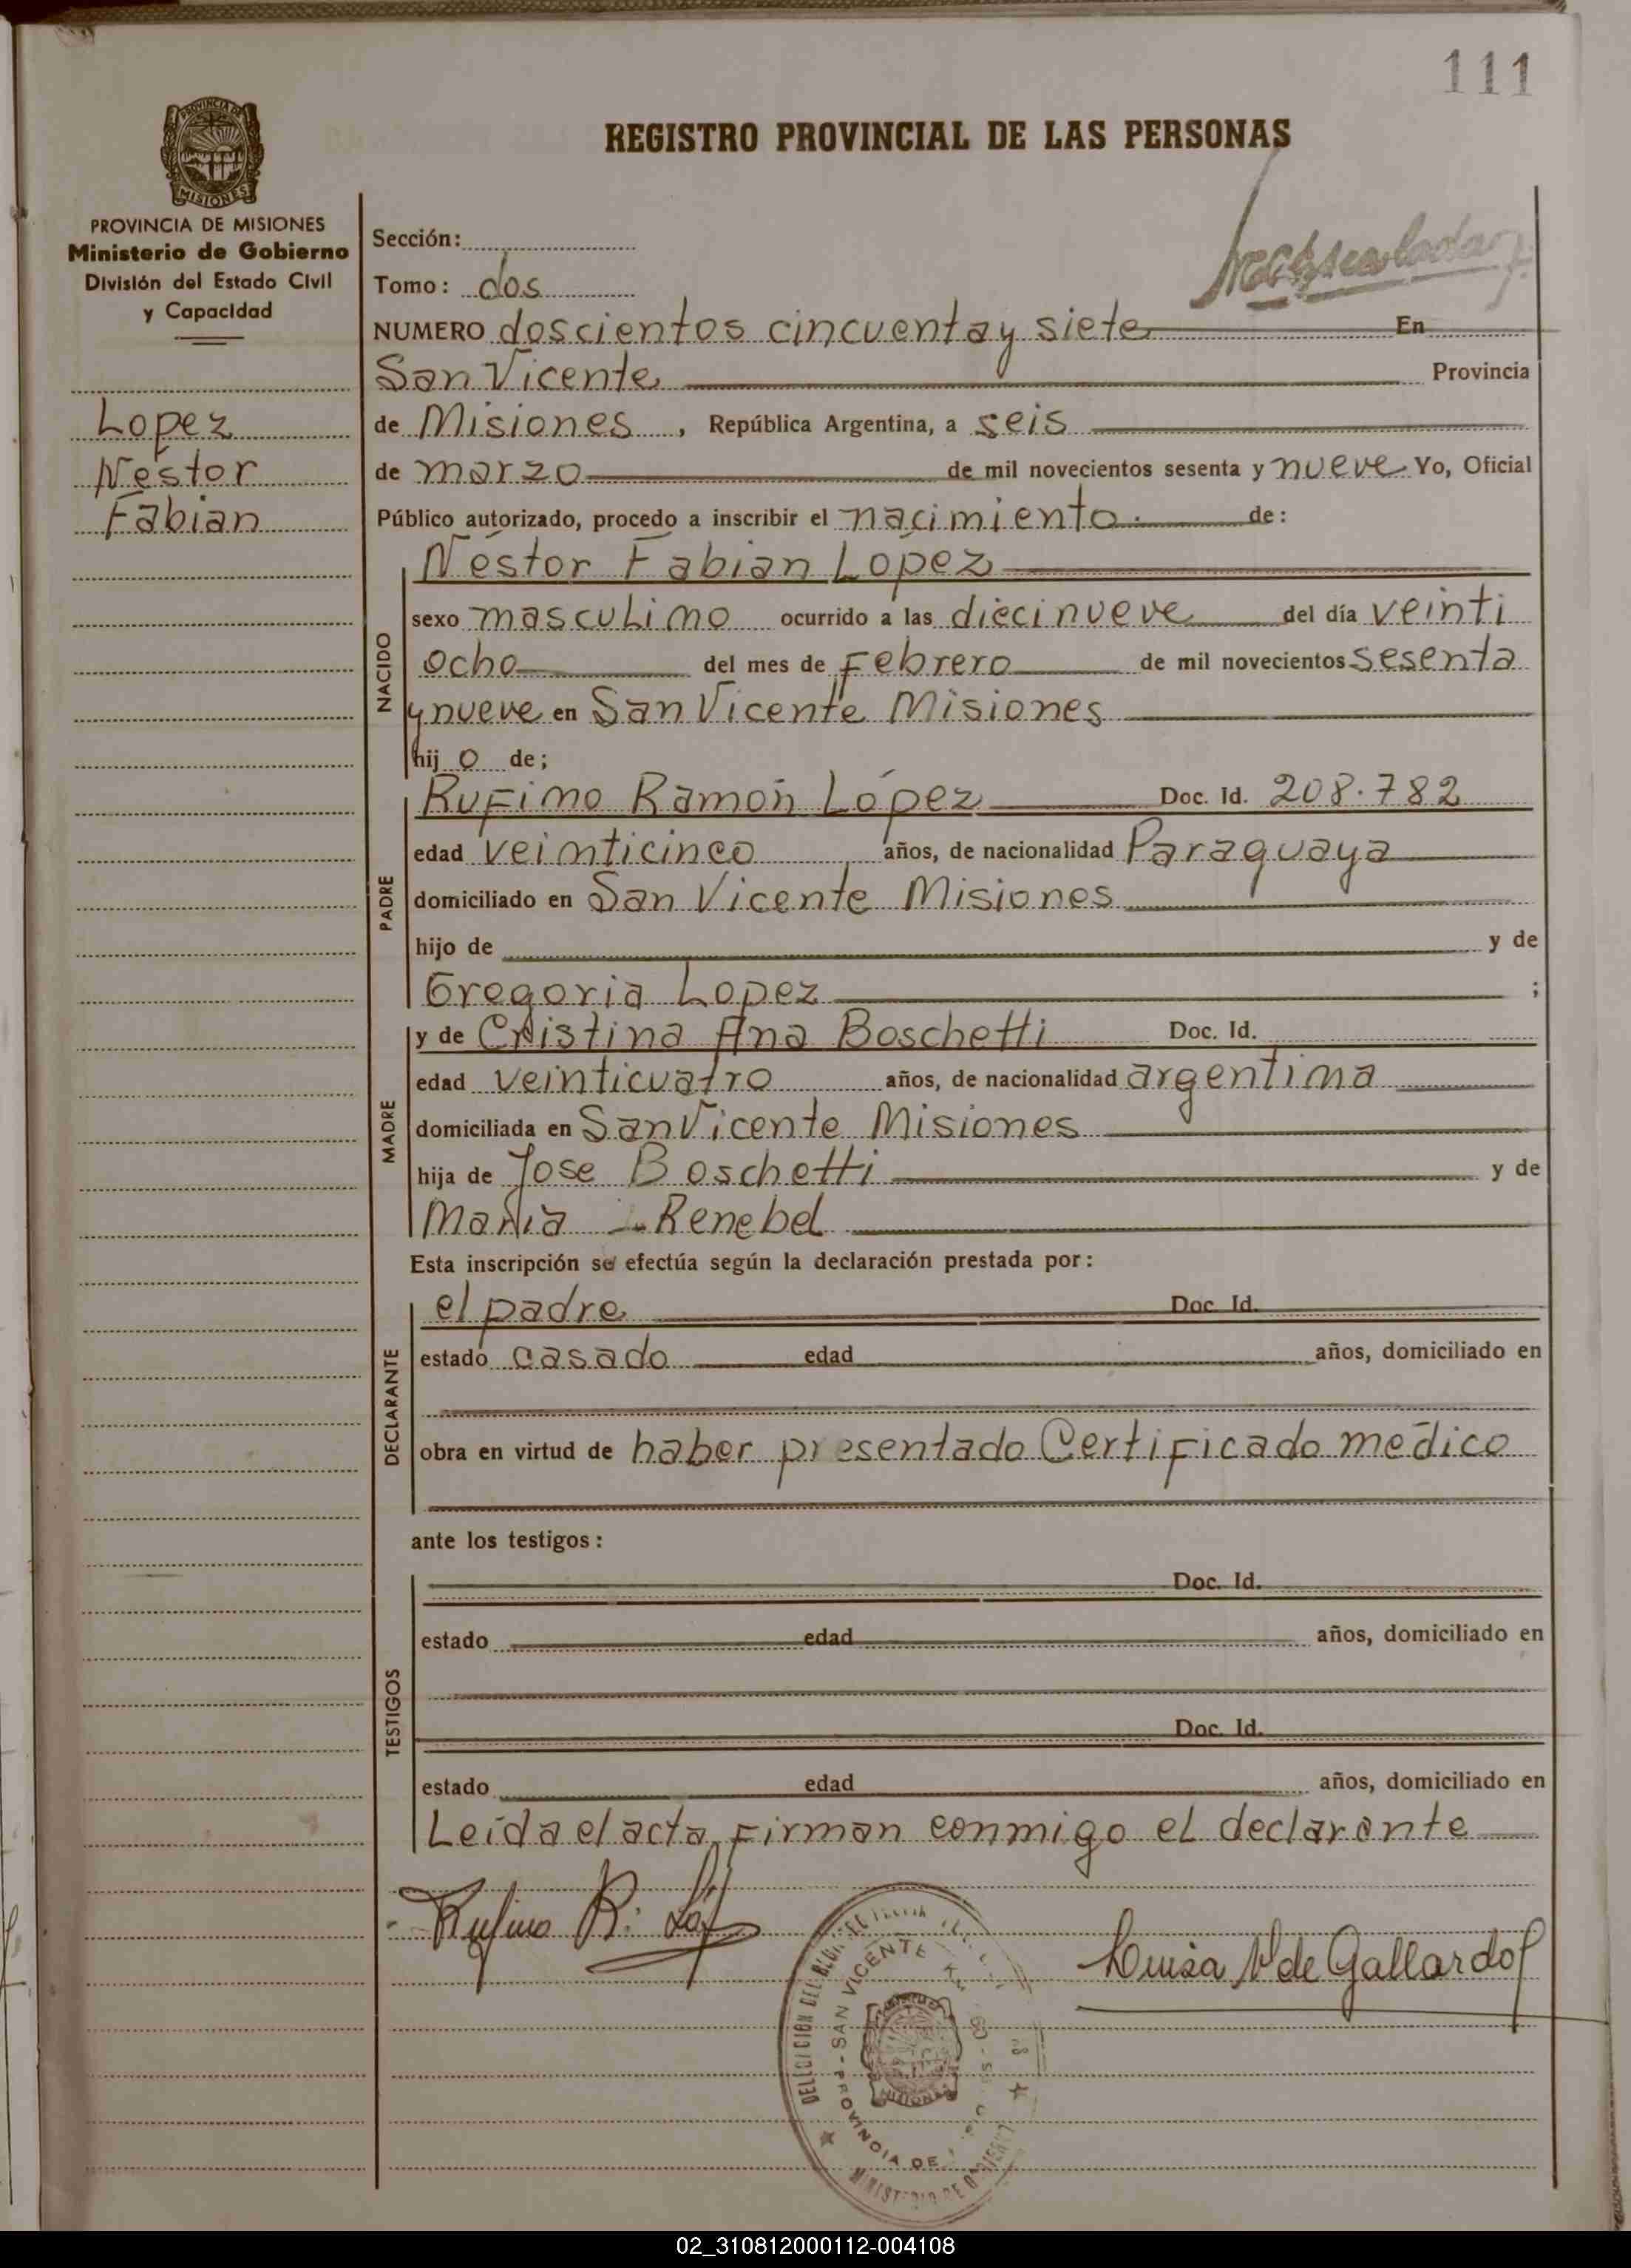 111
REGISTRO PROVINCIAL DE LAS PERSONAS
PROVINCIA DE
MISIONES
PROVINCIA DE MISIONES
Ministerio de Gobierno
División del Estado Civil
y Capacidad
Lopez
Nestor
Fabian
Sección:
Tomo: dos
NUMERO doscientos cincuenta y siete En
San Vicente Provincia
de Misiones, República Argentina, a seis
de marzo de mil novecientos sesenta y nueve Yo, Oficial
Público autorizado, procedo a inscribir el nacimiento. de:
NACIDO
Néstor Fabian Lopez
sexo masculino ocurrido a las diecinueve del día veinti
ocho del mes de Febrero de mil novecientos sesenta
y nueve en San Vicente Misiones
hij o de;
PADRE
Rufino Ramón López Doc. Id. 208.782
edad veinticinco años, de nacionalidad Paraguaya
domiciliado en San Vicente Misiones
hijo de y de
Gregoria Lopez ;
MADRE
y de Cristina Ana Boschetti Doc. Id.
edad veinticuatro años, de nacionalidad argentina
domiciliada en San Vicente Misiones
hija de Jose Boschetti y de
Maria Renebel
Esta inscripción se efectúa según la declaración prestada por:
DECLARANTE
el padre Doc. Id.
estado casado edad años, domiciliado en
obra en virtud de haber presentado Certificado médico
ante los testigos:
TESTIGOS
Doc. Id.
estado edad años, domiciliado en
Doc. Id.
estado edad años, domiciliado en
Leída el acta, firman conmigo el declarante
Rufino R. Lóp
Luisa V de Gallardo
SAN VICENTE
PROVINCIA DE
MINISTERIO DE GOBIERNO
02_310812000112-004108